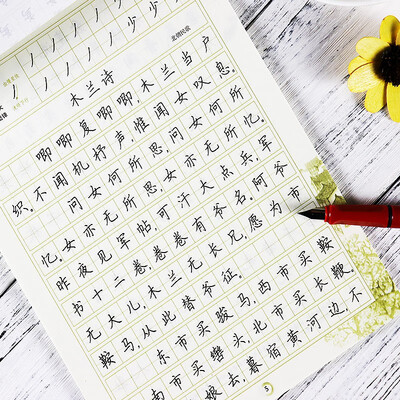 丿 丿 丿 丿 少 少
丿 丿 丿 丿 少 少
木兰诗
北朝民歌
唧唧复唧唧,木兰当户
织。不闻机杼声,惟闻女叹息。
问女何所思,问女何所
忆。女亦无所思,女亦无所忆。
昨夜见军帖,可汗大点兵,军
书十二卷,卷卷有爷名。阿爷
无大儿,木兰无长兄,愿为市
鞍马,从此替爷征。
东市买骏马,西市买鞍
南市买辔头,北市买长鞭。
娘去,暮宿黄河边,不
5